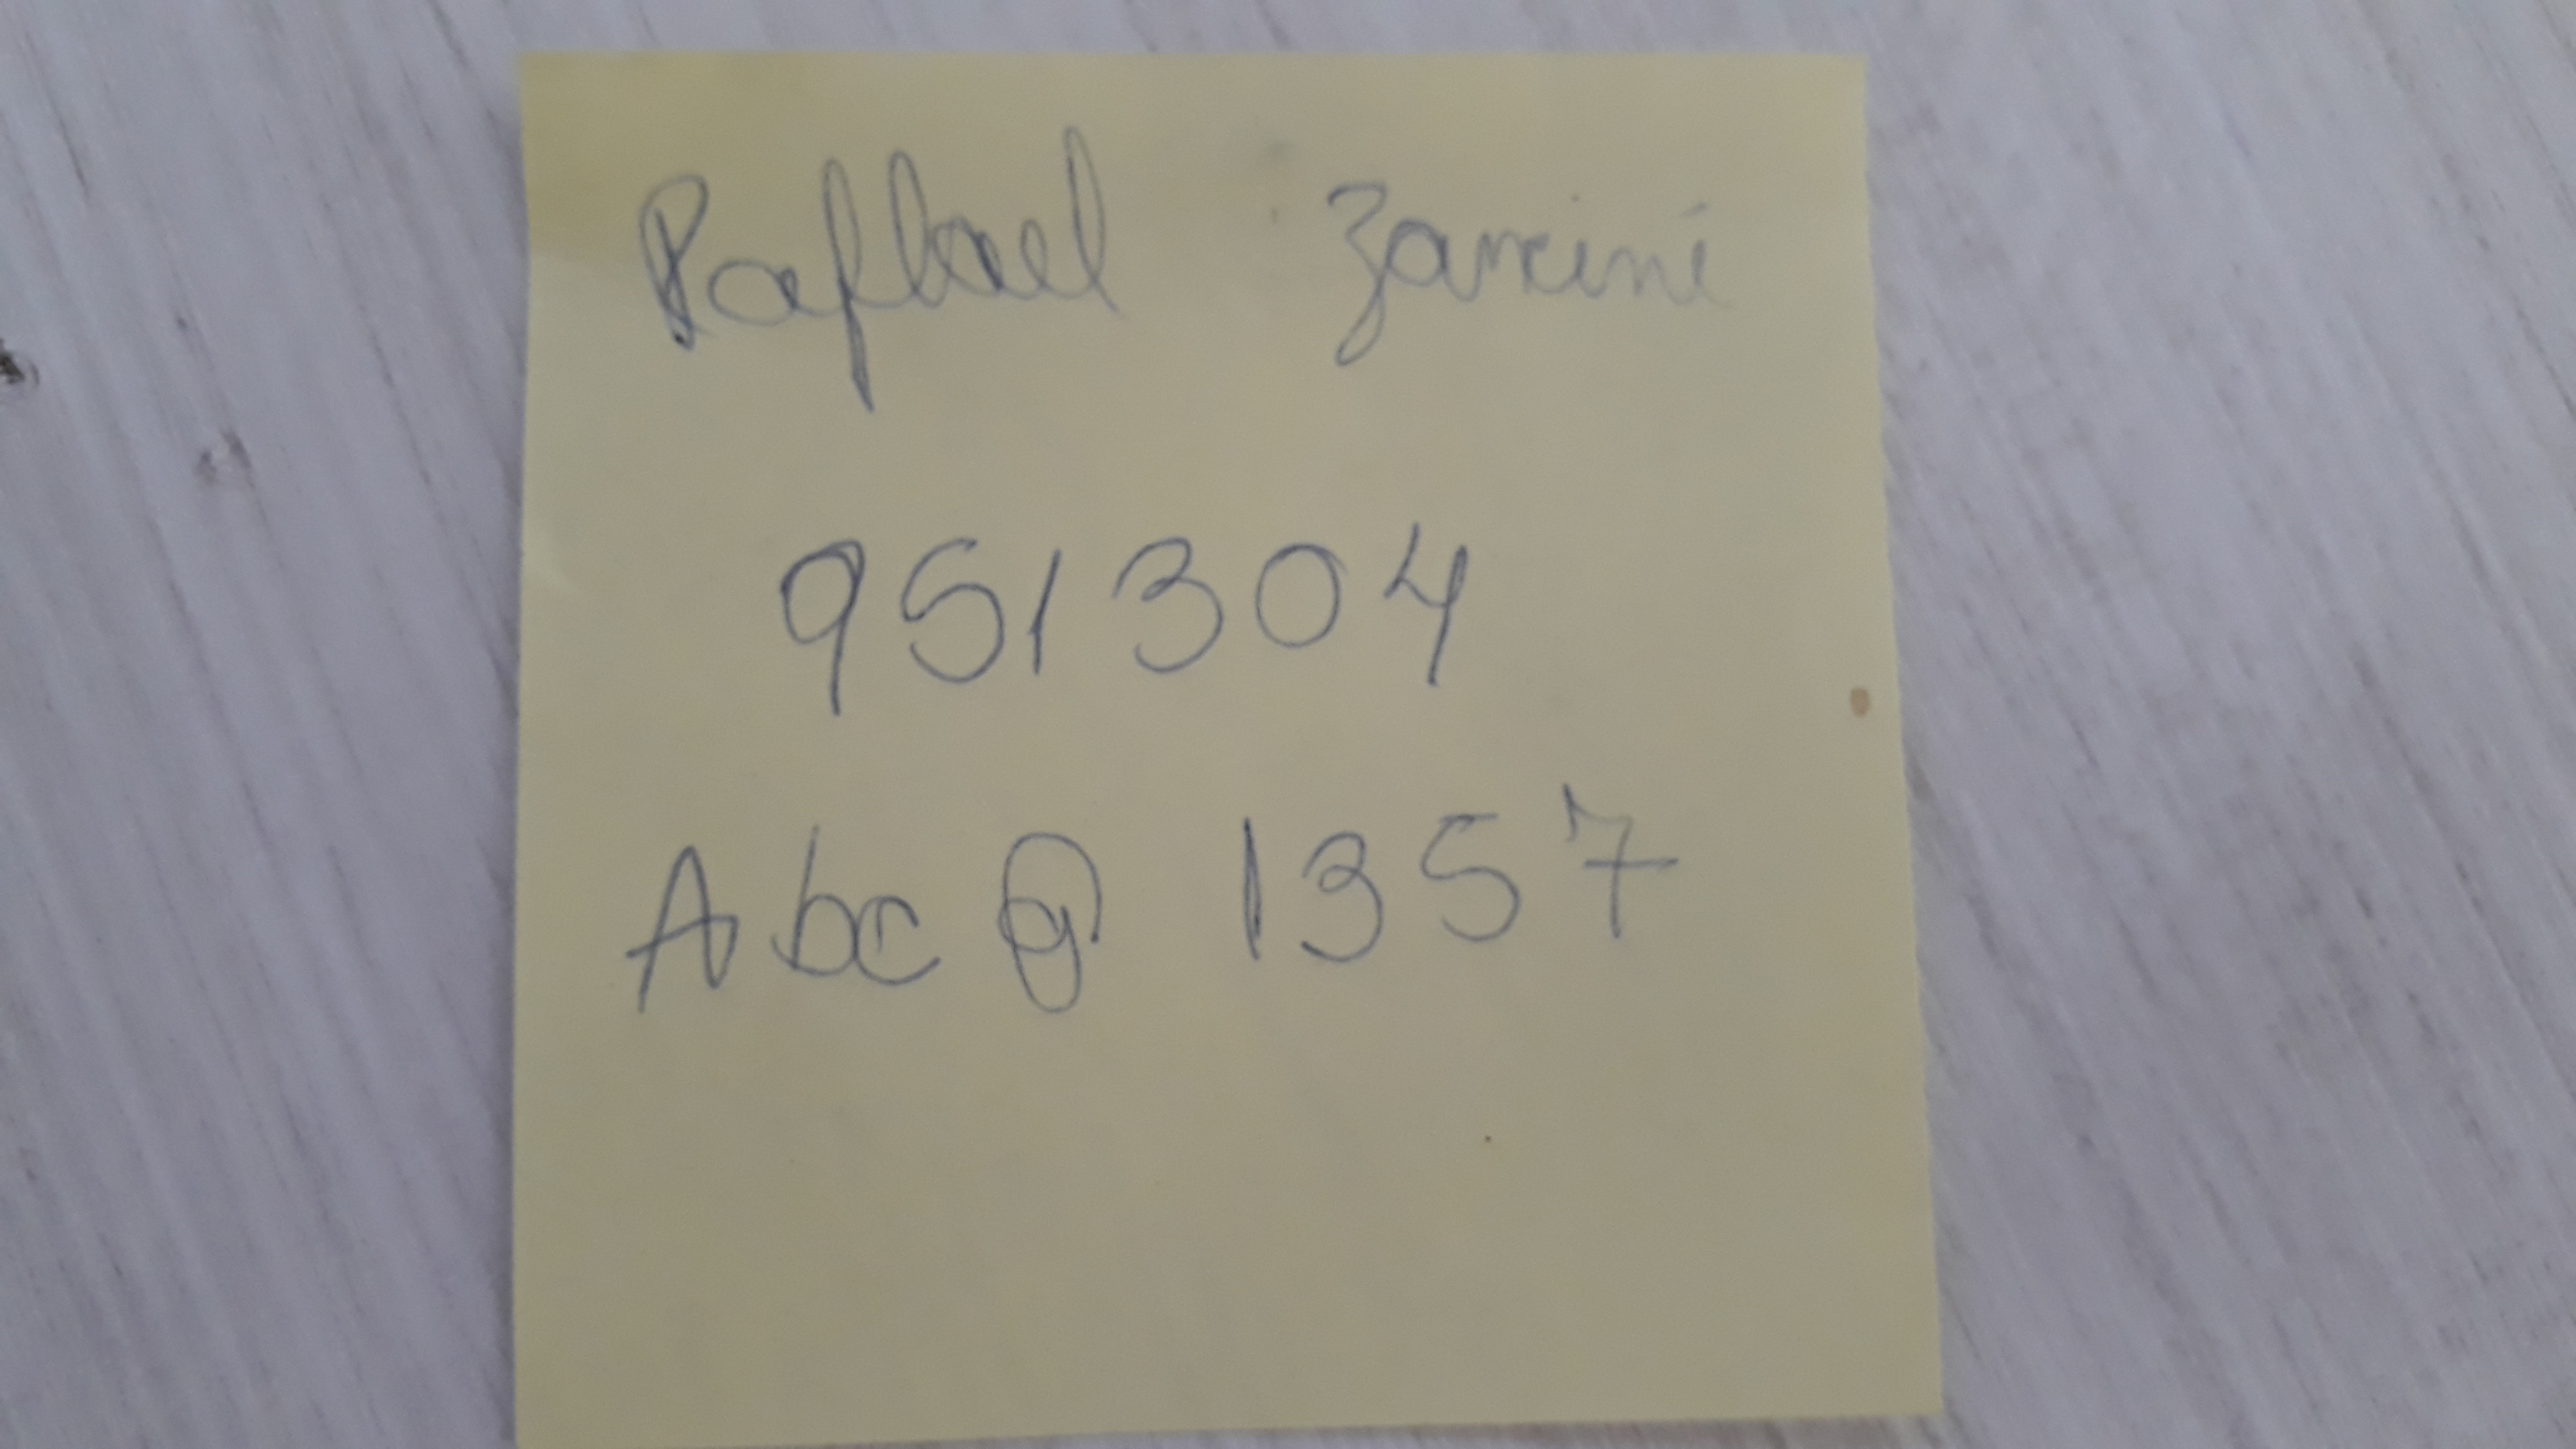 Raphael Zancini
951304
Abc@1357